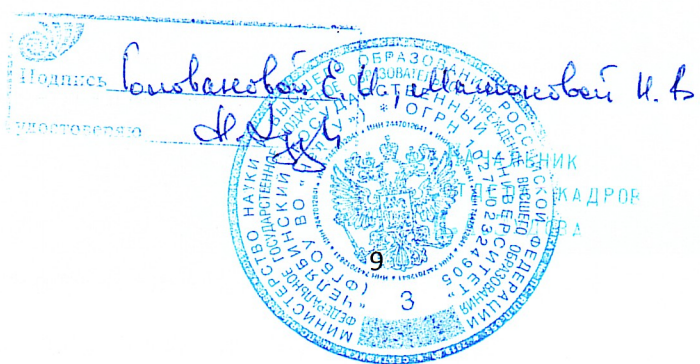 Подпись Головановой Е. И., Мамоновой Н. В
удостоверяю
НАЧАЛЬНИК
ОТДЕЛА КАДРОВ
МИНИСТЕРСТВО НАУКИ И ВЫСШЕГО ОБРАЗОВАНИЯ РОССИЙСКОЙ ФЕДЕРАЦИИ
ФЕДЕРАЛЬНОЕ ГОСУДАРСТВЕННОЕ БЮДЖЕТНОЕ ОБРАЗОВАТЕЛЬНОЕ УЧРЕЖДЕНИЕ ВЫСШЕГО ОБРАЗОВАНИЯ
"ЧЕЛЯБИНСКИЙ ГОСУДАРСТВЕННЫЙ УНИВЕРСИТЕТ"
(ФГБОУ ВО "ЧелГУ") * ОГРН 1027402324905
* ИНН 7447012841 *
9
3